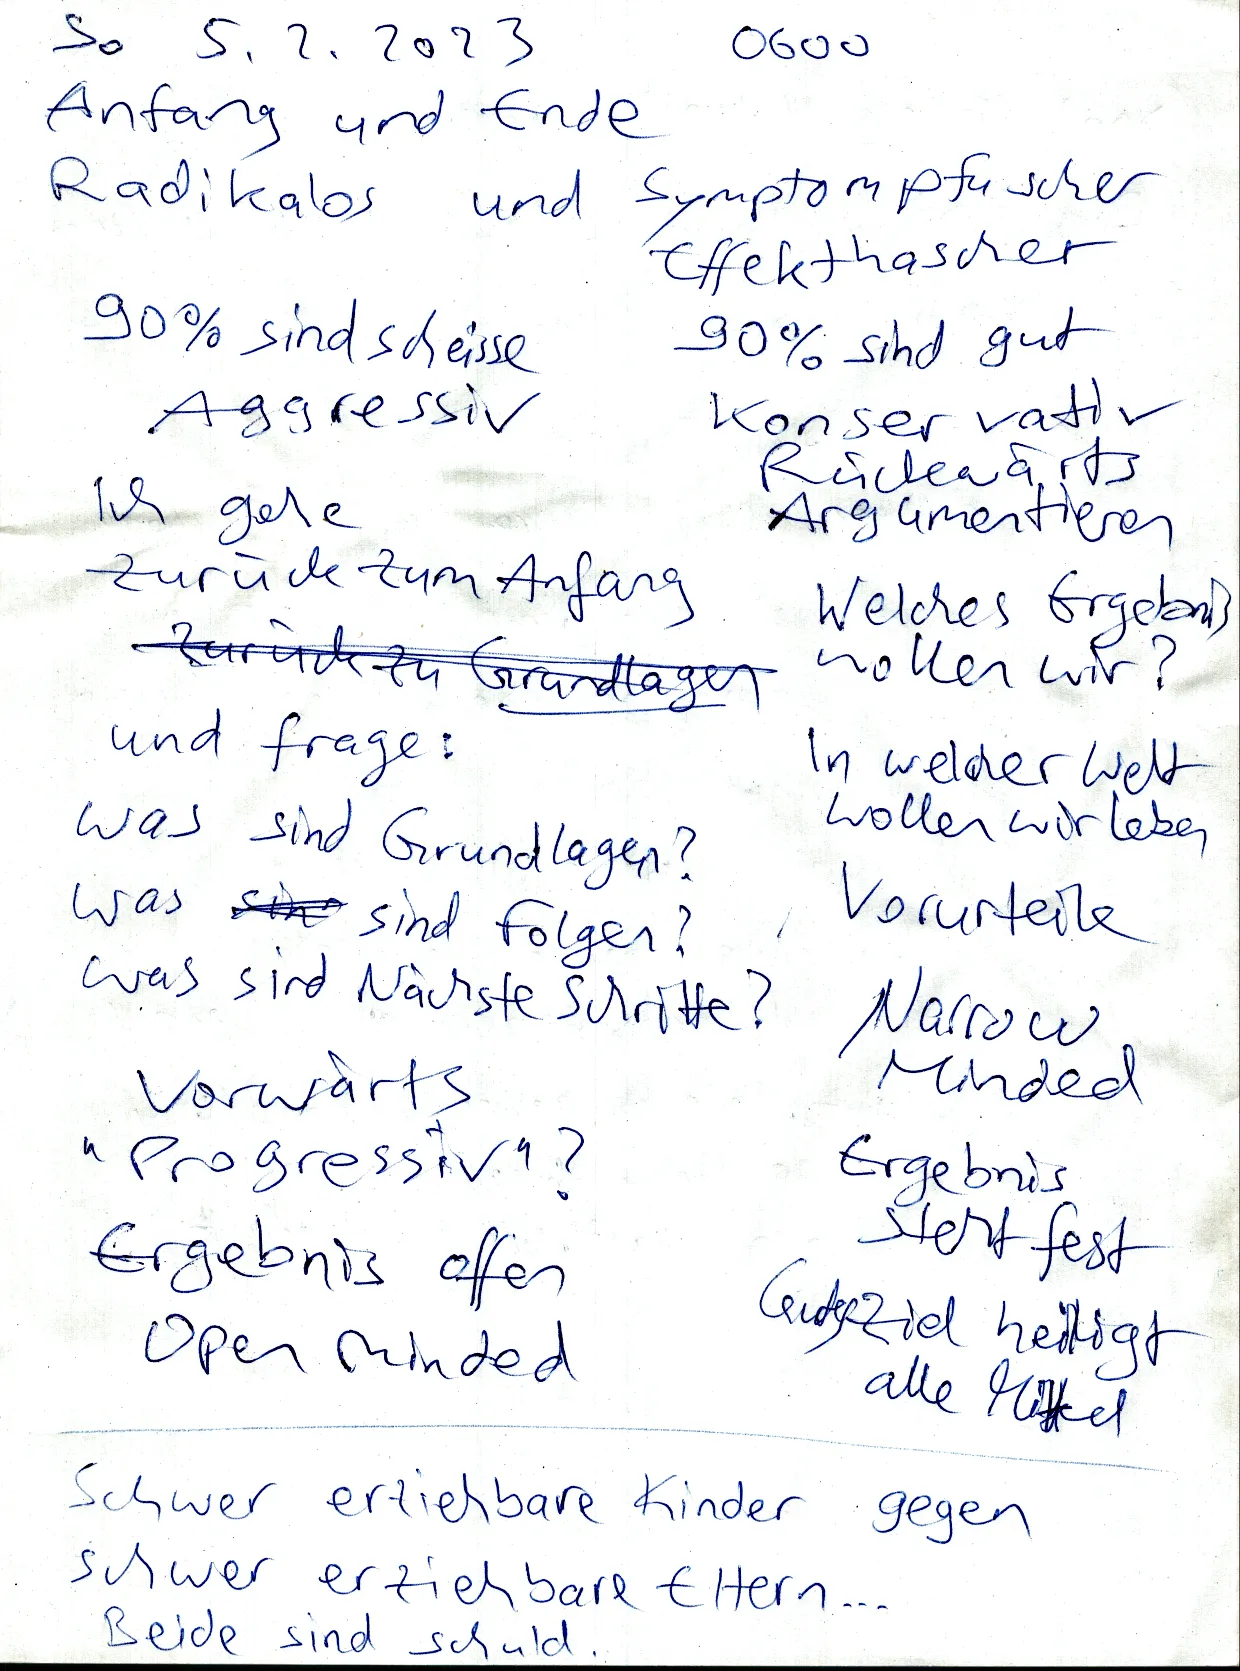 So 5.2.2023 0600
Anfang und Ende
Radikalos und Symptompfuscher
Effekthascher
90% sind scheisse
Aggressiv
Ich gehe
zurück zum Anfang
Zurück zu Grundlagen
und frage:
Was sind Grundlagen?
Was sind sind Folgen?
Was sind Nächste Schritte?
Vorwärts
"Progressiv"?
Ergebnis offen
Open Minded
90% sind gut
Konservativ
Rückwärts
Argumentieren
Welches Ergebnis
wollen wir?
In welcher Welt
wollen wir leben
Vorurteile
Narrow
Minded
Ergebnis
steht fest
Ziel heiligt
alle Mittel
Schwer erziehbare Kinder gegen
schwer erziehbare Eltern...
Beide sind schuld.